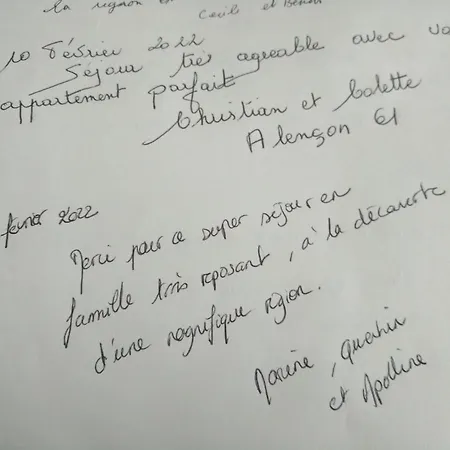 la region
Cecil et Benoit
10 Février 2022
Séjour très agréable avec vo
appartement parfait
Christian et Colette
Alençon 61
février 2022
Merci pour ce super séjour en
famille très reposant, à la découverte
d'une magnifique région.
Marine, Quentin
et Apolline